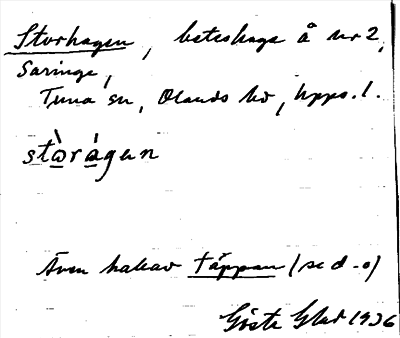 Storhagen, beteshage å nr 2,
Saringe,
Tuna sn, Olands hd, Upps. l.
stɷ̀rágen
Även kallad Täppan (se d. o)
Gösta Glad 1936